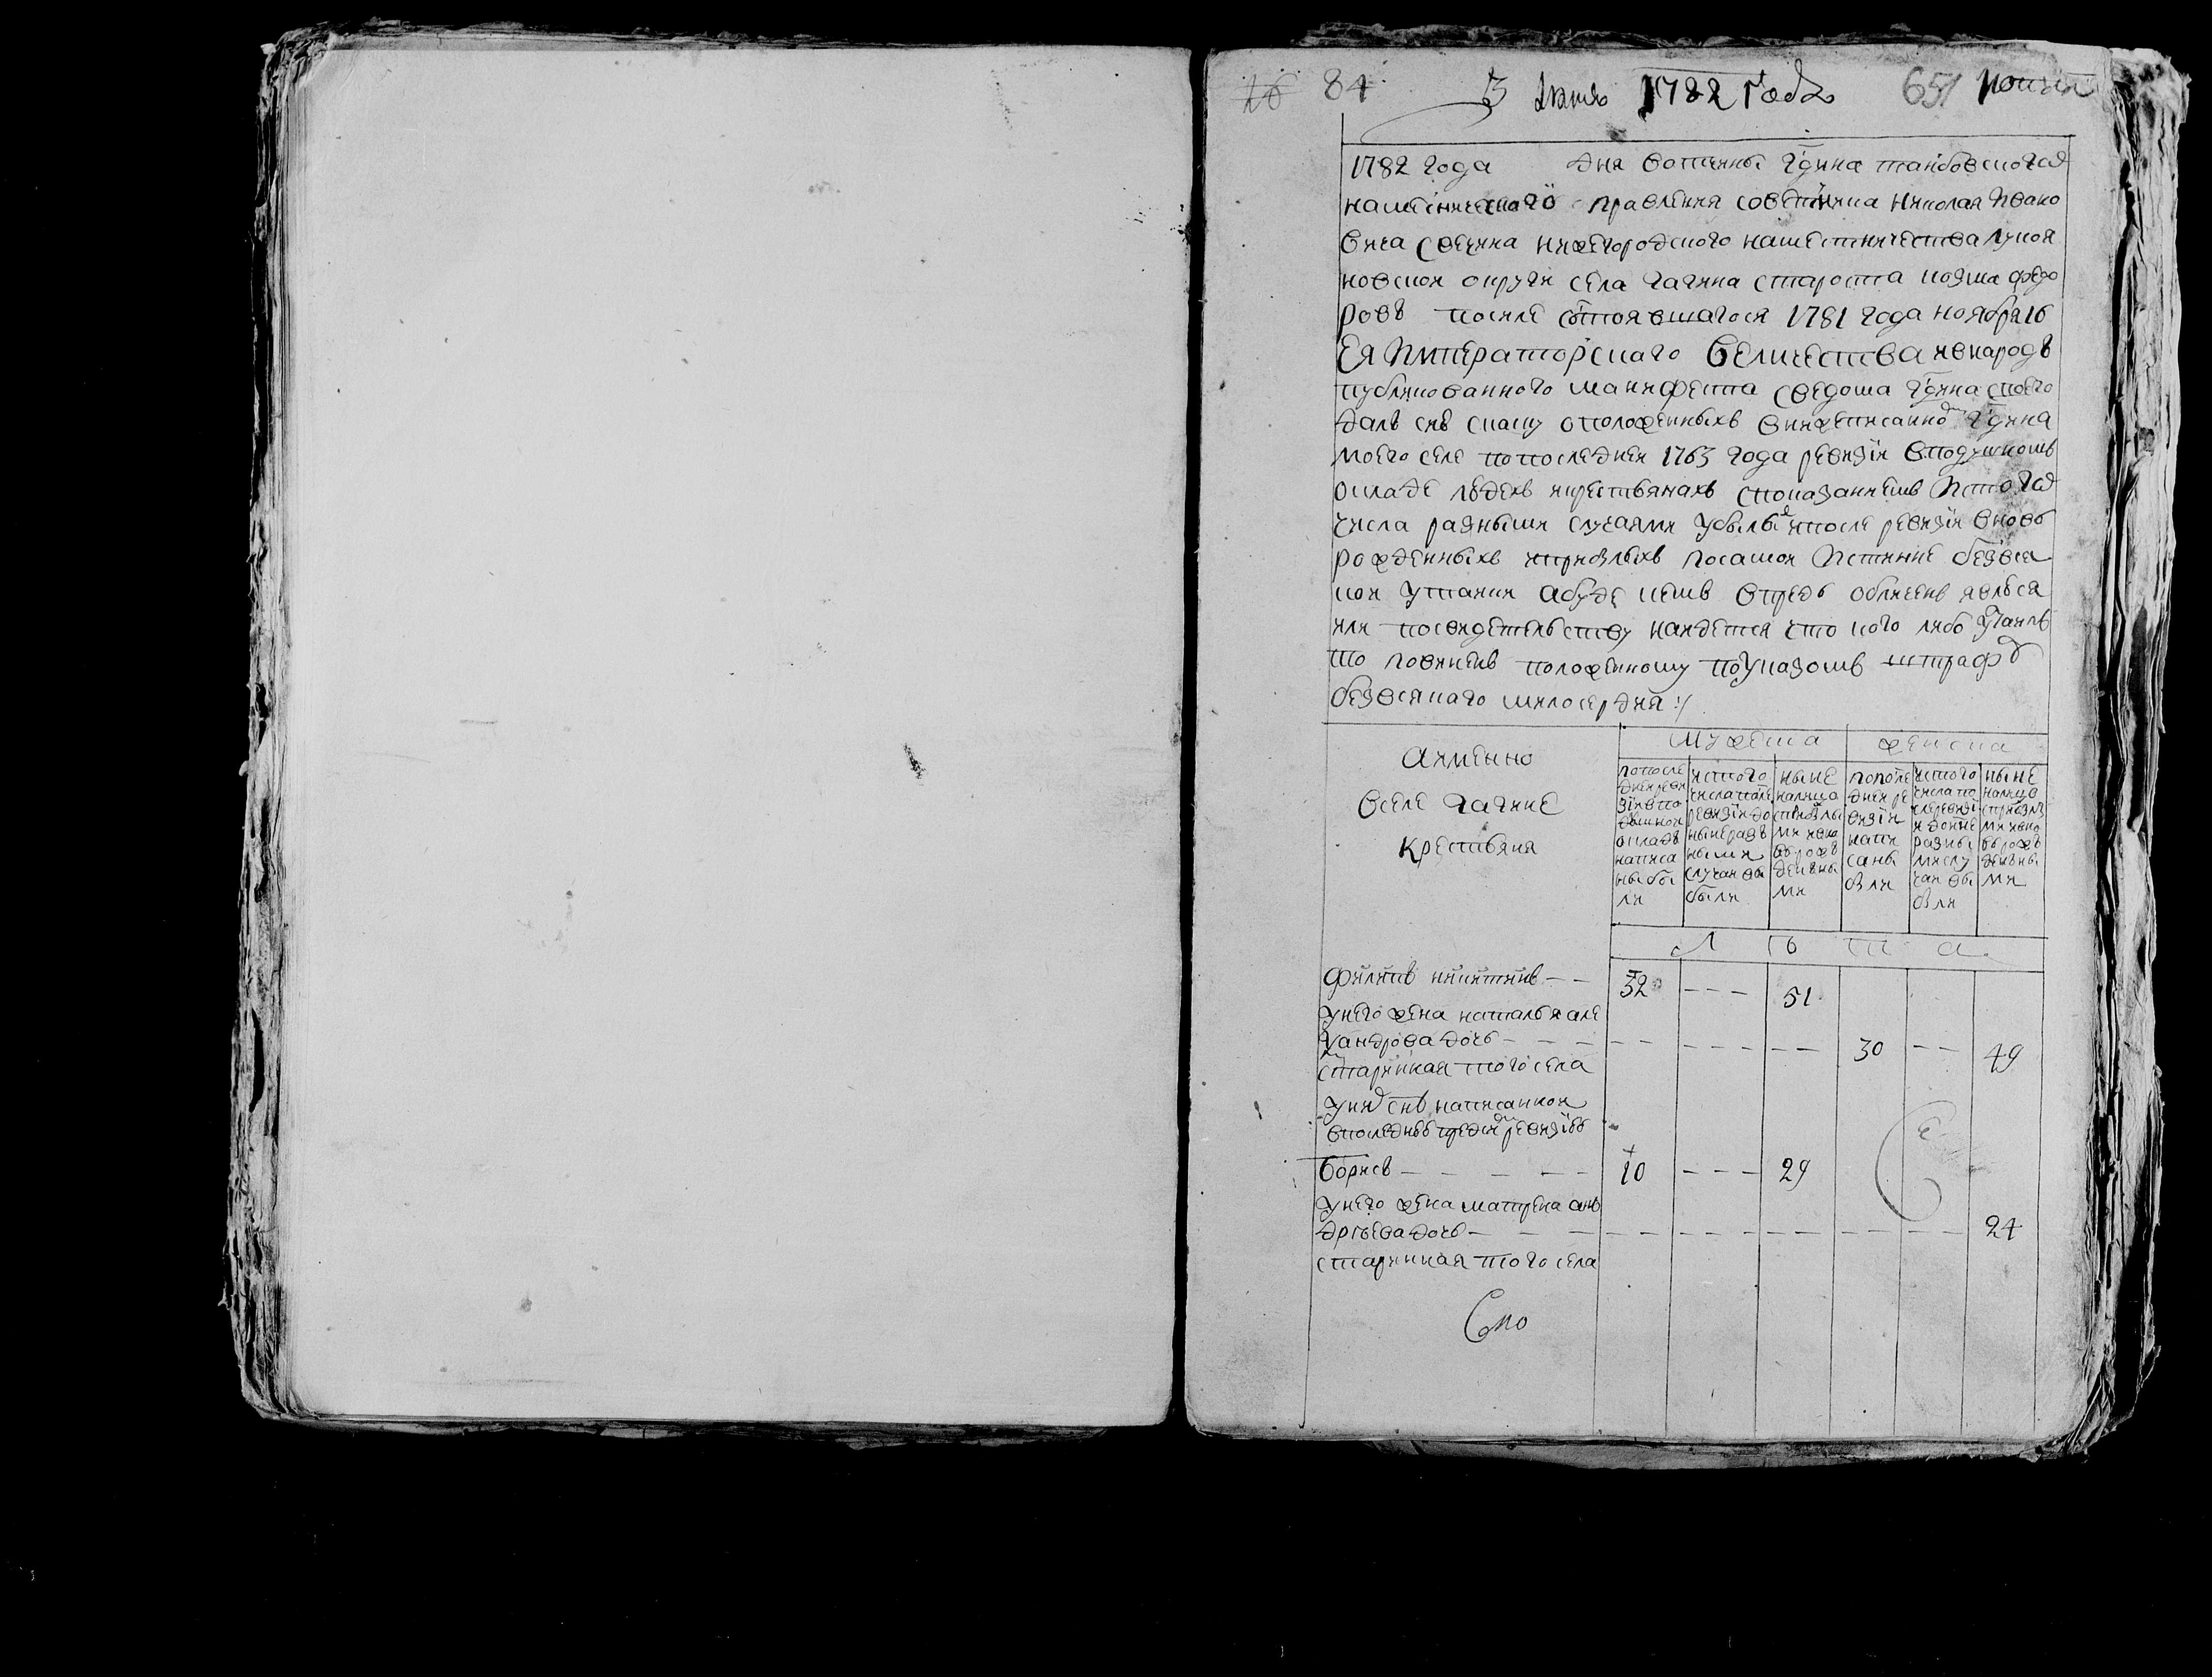 84 1782 года 651
1782 года дня вотчины гдна танбовского
наместнического правления советника Николая Ивано
вича Свечина нижегородского наместничества лукоя
новской округи села гагина староста козма федо
ровъ после состоявшагося 1781 года ноября 16
Ея Императорскаго Величества ивнародъ
публикованного манифеста сведома гдна своего
далъ сию скаску оположенныхъ внижеписанно гдна
моего селе попоследней 1763 года ревизіи вподушномъ
окладе людехъ икрестьянахъ споказаниемъ Истого
числа разными случаями убылы ипосле ревизіи вновь
рожденныхъ иприбылыхъ посамой Истинне безвся
кой утайки абуде кемъ впредь обличенъ явлься
или посвидетельству найдется что кого либо утаилъ
то повиненъ положенному поуказомъ штрафу
безвсякаго милосердия :/
Аимянно
вселе гагине
крестьяня
мужеска женска
попосле
дней реви
зіи впо
душной
окладъ
написа
ны бы
ли
истого
числа после
ревизіи до
ныне разъ
ными
случаи вы
были
ныне
налицо
сприбылы
ми ивно
вь рожъ
денъны
ми
попосле
дней ре
визіи
напи
саны
были
истого
числа по
сле ревизі
и доные
разны
ми слу
чаи вы
были
ныне
налицо
сприбылы
ми ивно
вь рожъ
денъны
ми
л ѣ т а
Филипъ никитинъ — — 32 — — — 51
унего жена наталья але
ѯандрова дочь — — — — — — — — — — 30 — — 49
старинная того села
унихъ снъ написанной
впоследнью предъ сею ревизію
борисъ — — — — — 10 — — — 29
унего жена матрена анъ
дрѣева дочь — — — — — — — — — — 24
старинная того села